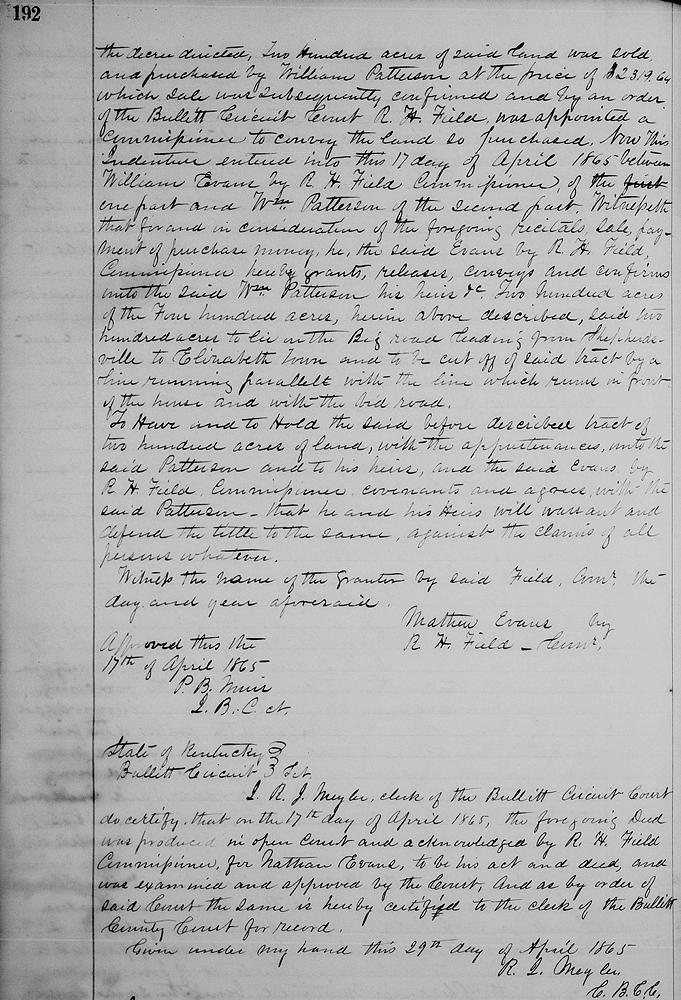 192
the decree directed, Two Hundred acres of said land was sold,
and purchased by William Patterson at the price of $2319.64
which sale was subsequently confirmed and by an order
of the Bullitt Circuit Court R. H. Field, was appointed a
Commissioner to convey the land so purchased. Now This
Indenture entered into this 17 day of April 1865 between
William Evans by R. H. Field Commissioner, of the first
one part and Wm Patterson of the second part. Witnesseth
that for and in consideration of the foregoing recitals, Sale, pay-
ment of purchase money, he, the said Evans by R. H. Field,
Commissioner hereby grants, releases, conveys and confirms
unto the said Wm Patterson his heirs &c. Two hundred acres
of the Four hundred acres, herein above described, said two
hundred acres to lie on the Big road leading from Shepherds-
ville to Elizabeth Town and to be cut off of said tract by a
line running parallell with the line which runs in front
of the house and with the bid road.
To Have and to Hold the said before described tract of
two hundred acres of land, with the appurtenances, unto the
said Patterson and to his heirs, and the said Evans by
R H. Field, Commissioner, covenants and agrees, with the
said Patterson - that he and his Heirs will warrant and
defend the tittle to the same, against the claims of all
persons whatever.
Witness the name of the Grantor by said Field, Comr. the
day and year aforesaid.
Mathew Evans by
R H. Field - Comr.
Approved this the
17th of April 1865
P. B. Muir
J. B. C. ct.
State of Kentucky
Bullitt Circuit Sct.
I. R. J. Meyler, clerk of the Bullitt Circuit Court
do certify, that on the 17th day of April 1865, the foregoing Deed
was produced in open Court and acknowledged by R. H. Field
Commissioner, for Nathan Evans, to be his act and deed, and
was examined and approved by the Court, And as by order of
said Court the same is hereby certified to the clerk of the Bullitt
County Court for record.
Given under my hand this 29th day of April 1865
R. J. Meyler
C. B. C. C.